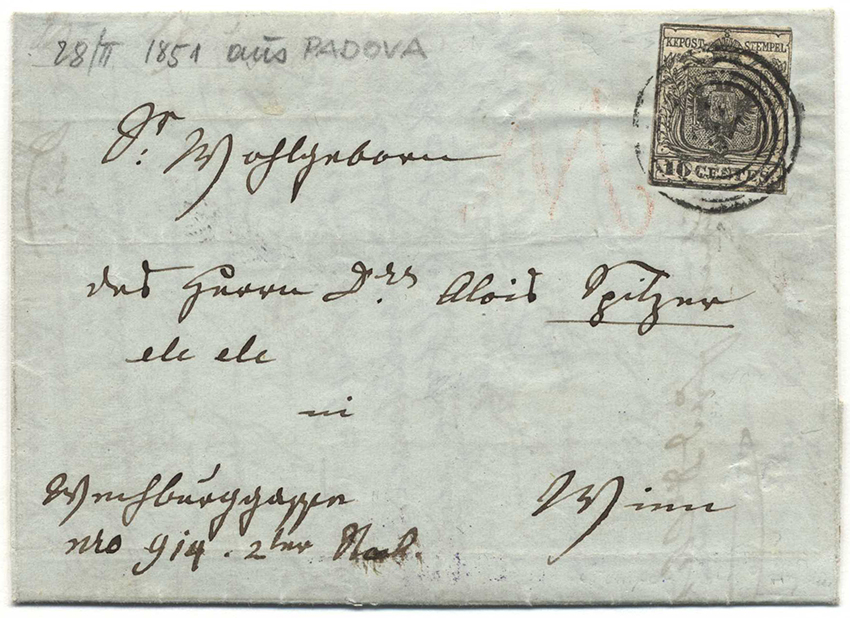 28/II 1851 aus PADOVA
KKPOST-STEMPEL
10 CENTES
Sr. Wohlgeborn
des Herrn Drs. Alois Spitzer
etc etc
in
Wien
nro 914. 2ter Stock.